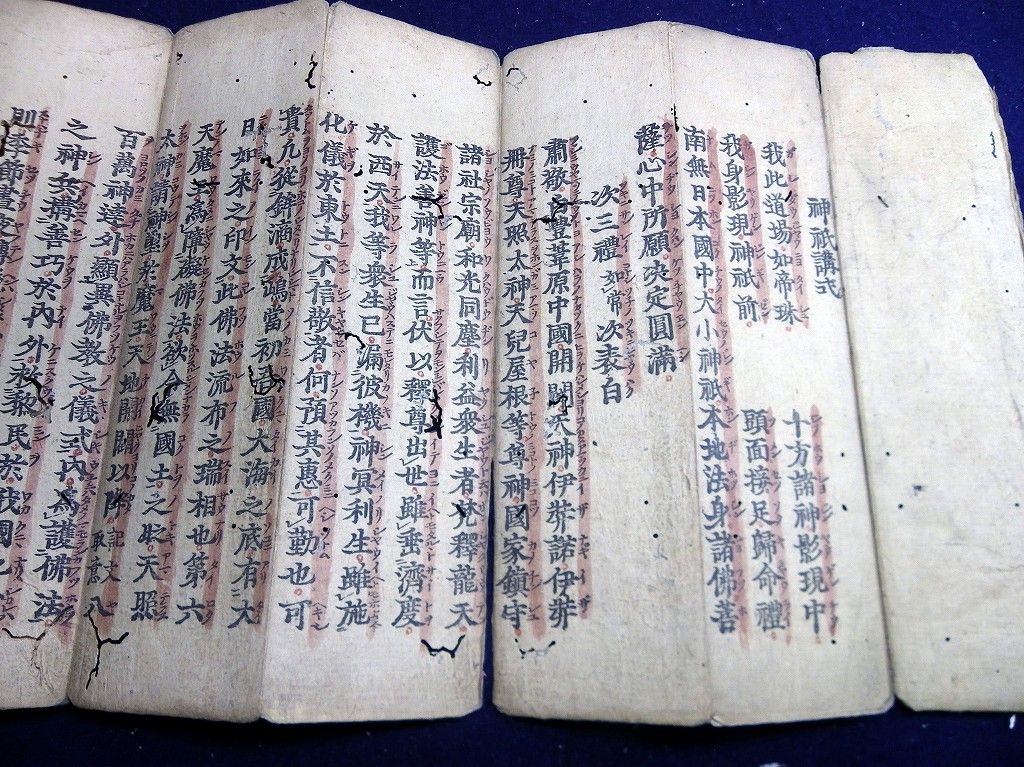 神祇講式
我此道場如帝珠　十方諸神影現中
我身影現神祇前　頭面接足歸命禮
南無日本國中大小神祇本地法身諸佛善
薩心中所願決定圓滿
次三禮 如常 次表白
肅敬 豊葦原中國開闢天神伊弉諾伊弉
冊尊天照太神天兒屋根等尊神國家鎮守
諸社宗廟和光同塵利益衆生者梵釋龍天
護法善神等而言伏以釋尊出世雖垂濟度
於西天我等衆生已漏彼機神冥利生雖施
化儀於東土不信敬者何預其惠可勤也可
貴九從鉾滴成 當初 國大海之底有大
日如來之印文此佛法流布之瑞相也第六
天魔 爲障礙佛法欲令無國土之 天照
太神請神璽 魔王天地開闢以降 記文取意 八
百萬神達外顯異佛教之儀式内爲護佛法
之神兵搆善巧於内外 黎民於我國
則